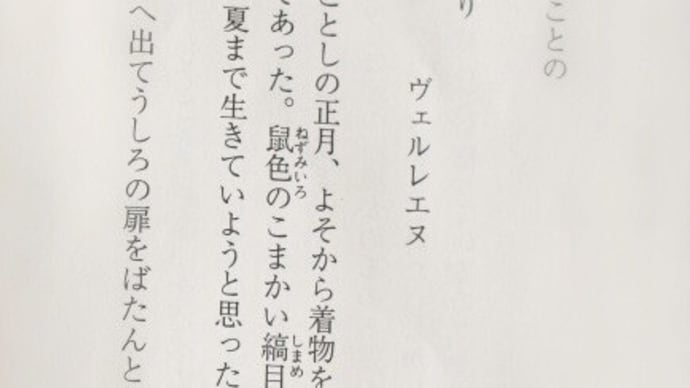 ことの
り
ヴェルレエヌ
ことしの正月、よそから着物を
であった。鼠色のこまかい縞目
夏まで生きていようと思った
へ出てうしろの扉をばたんと